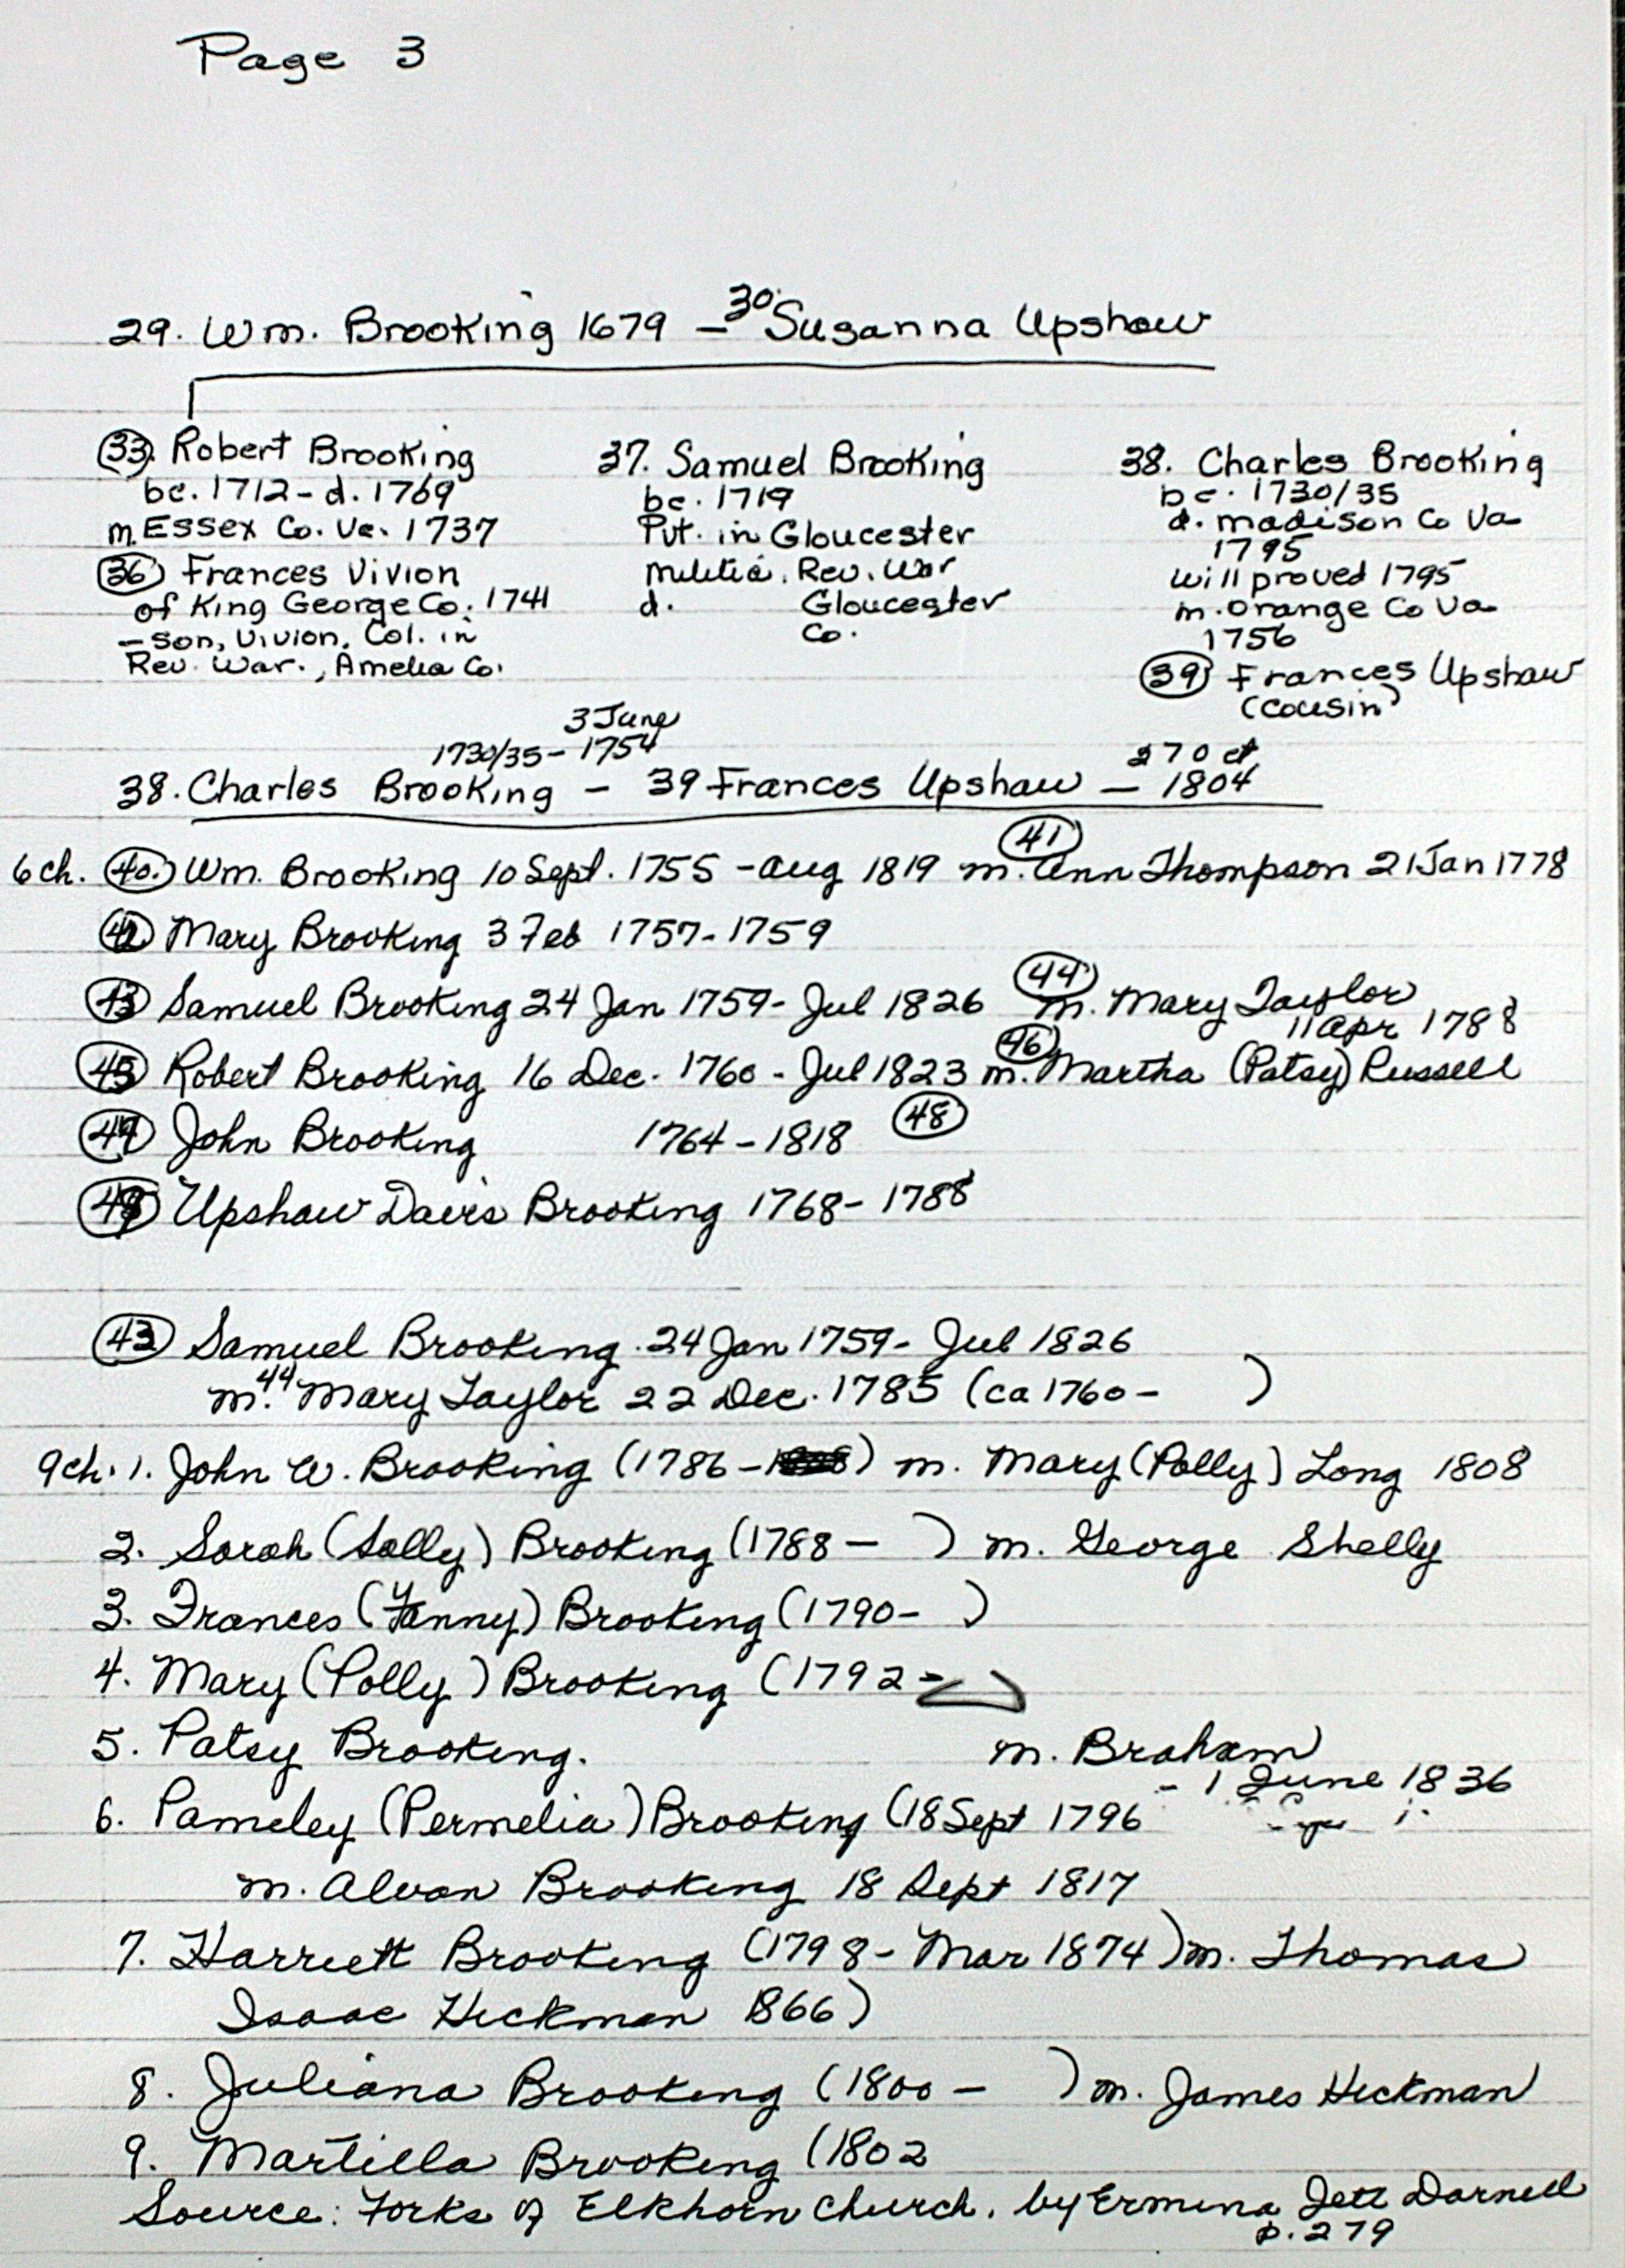 Page 3
29. Wm. Brooking 1679 — 30. Susanna Upshaw
33. Robert Brooking
bc. 1712 - d. 1769
m. Essex Co. Va. 1737
36 Frances Vivion
of King George Co. 1741
- son, Vivion, Col. in
Rev. War., Amelia Co.
37. Samuel Brooking
bc. 1719
Pvt. in Gloucester
Militia, Rev. War
d. Gloucester
Co.
38. Charles Brooking
bc. 1730/35
d. Madison Co Va
1795
will proved 1795
m. Orange Co Va
1756
39 Frances Upshaw
(cousin)
3 June
1730/35 - 1754
270ct
38. Charles Brooking - 39 Frances Upshaw — 1804
6 ch. 40. Wm. Brooking 10 Sept. 1755 - Aug 1819 m. 41 Ann Thompson 21 Jan 1778
42 Mary Brooking 3 Feb 1757 - 1759
43 Samuel Brooking 24 Jan 1759 - Jul 1826 44 m. Mary Taylor
11 Apr 1788
45 Robert Brooking 16 Dec. 1760 - Jul 1823 m. 46 Martha (Patsy) Russell
47 John Brooking 1764 - 1818 48
49 Upshaw Davis Brooking 1768 - 1788
43 Samuel Brooking. 24 Jan 1759 - Jul 1826
m. 44 Mary Taylor 22 Dec. 1785 (ca 1760 - )
9 ch. 1. John W. Brooking (1786 - ) m. Mary (Polly) Long 1808
2. Sarah (Sally) Brooking (1788 — ) m. George Shelly
3. Frances (Fanny) Brooking (1790 - )
4. Mary (Polly) Brooking (1792 - )
5. Patsy Brooking. m. Braham
6. Pameley (Permelia) Brooking (18 Sept 1796 - 1 June 1836
m. Alvan Brooking 18 Sept 1817
7. Harriett Brooking (1798 - Mar 1874) m. Thomas
Isaac Hickman 1866)
8. Juliana Brooking (1800 — ) m. James Hickman
9. Martilla Brooking (1802
Source: Forks of Elkhorn Church. by Ermina Jett Darnell
p. 279